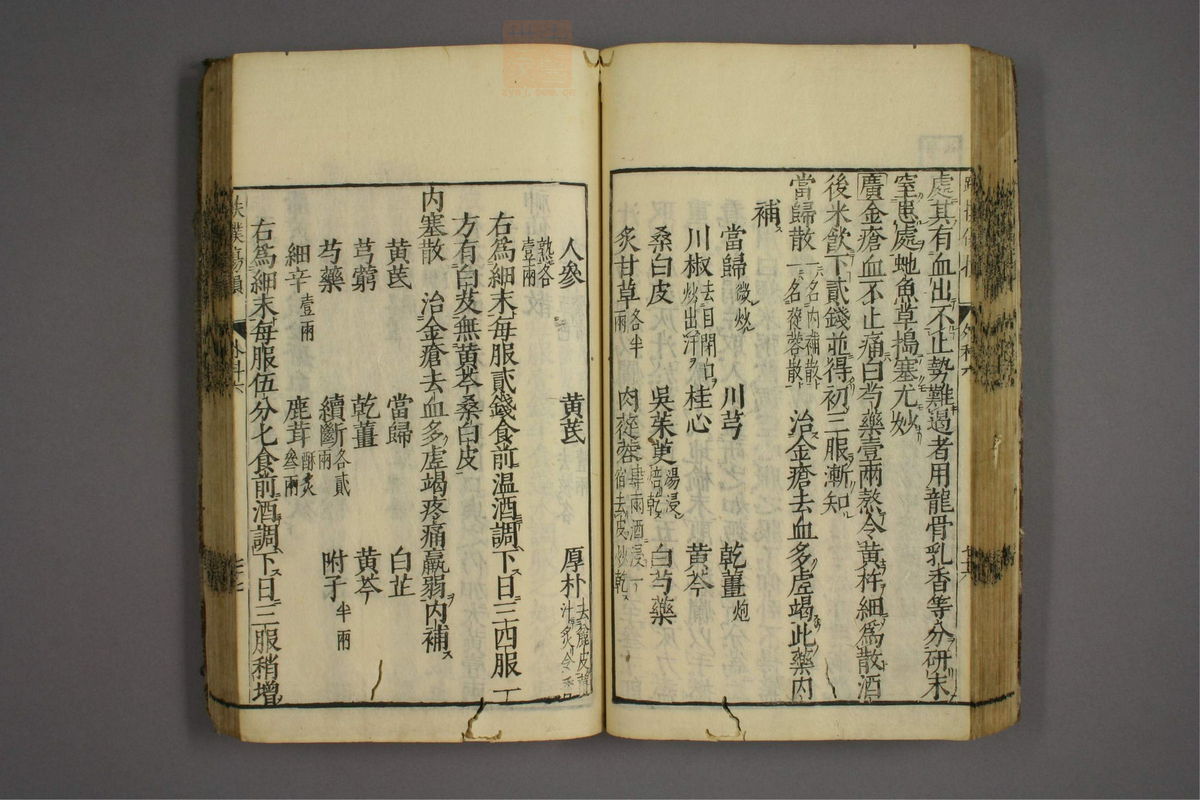 處其有血出不止勢難遏者用龍骨乳香等分研末
窒患處虵魚草搗塞尤妙
廣金瘡血不止痛白芍藥壹兩熬令黄杵細為散酒
後米飲下貳錢並得初三服漸知
當歸散一名内補散一名蓯蓉散 治金瘡去血多虛竭此藥内
補
當歸微炒 川芎 乾薑炮
川椒去目閉口炒出汗 桂心 黄芩
桑白皮 吳茱萸湯浸焙乾 白芍藥
炙甘草各半兩 肉蓯蓉肆兩酒浸一宿去皮炒乾
人參 黄芪 厚朴去麄皮薑汁炙令香
熟各壹兩
右為細末每服貳錢食前温酒調下日三四服一
方有白芨無黄芩桑白皮
内塞散 治金瘡去血多虛竭疼痛羸弱内補
黄芪 當歸 白芷
芎藭 乾薑 黄芩
芍藥 續斷各貳兩 附子半兩
細辛壹兩 鹿茸酥炙叁兩
右為細末每服伍分匕食前酒調下日三服稍增
外科六